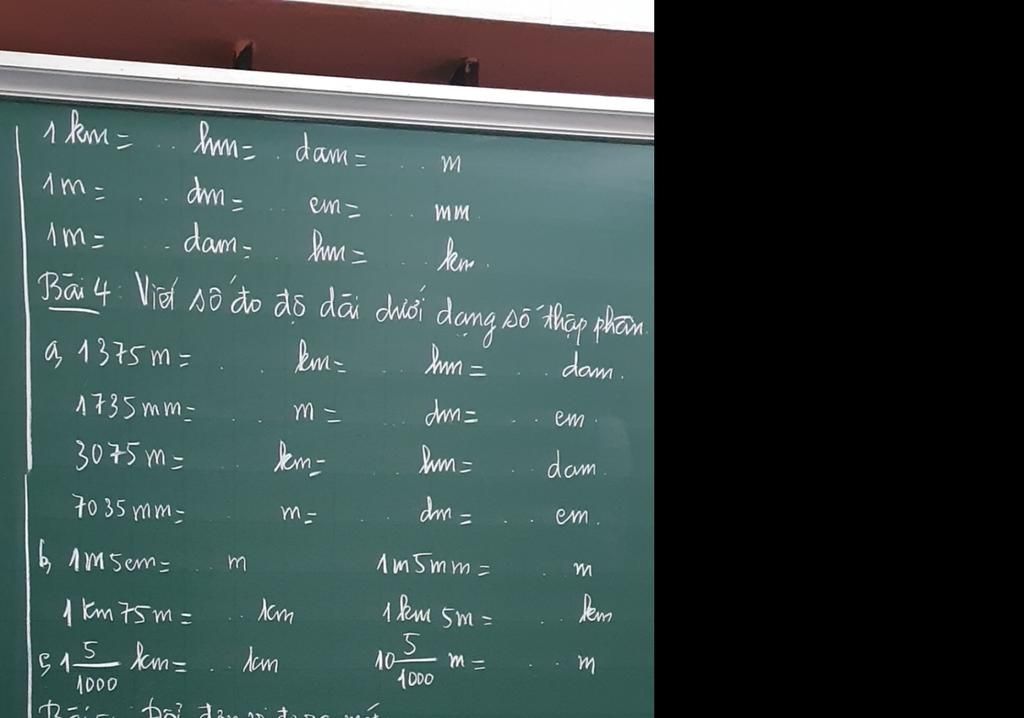 1 km = .. hm = . dam = .. m
1m = .. dm = em = .. mm.
1m = .. dam = hm = .. km.
Bài 4: Viết số đo độ dài dưới dạng số thập phân.
a, 1375 m = . km = .. hm = .. dam.
1735 mm = .. m = .. dm = .. em.
3075 m = .. km = .. hm = .. dam.
7035 mm = .. m = .. dm = .. em.
b, 1m5em = .. m 1m5mm = .. m
1km75m = .. km 1km 5m = .. km
c, 1 5/1000 km = .. km 10 5/1000 m = .. m